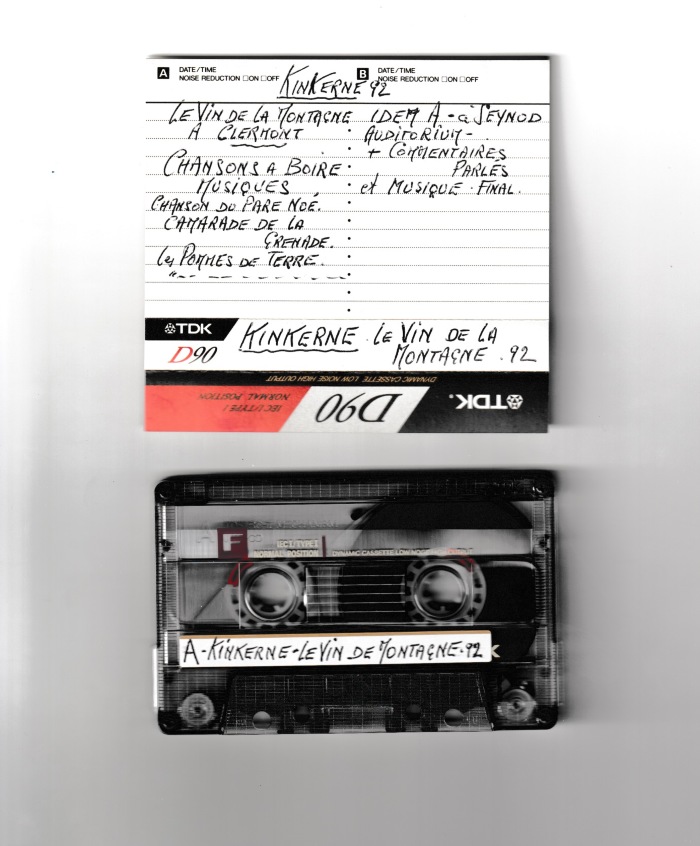 A DATE/TIME
NOISE REDUCTION □ON □OFF
B DATE/TIME
NOISE REDUCTION □ON □OFF
KINKERNE 92
LE VIN DE LA MONTAGNE
A CLERMONT
CHANSONS A BOIRE
MUSIQUES
CHANSON DU PARE NOÉ.
CAMARADE DE LA
GRENADE.
les POMMES DE TERRE.
IDEM A - à SEYNOD
AUDITORIUM -
+ COMMENTAIRES
PARLÉS
et MUSIQUE FINAL.
TDK
D90
KINKERNE. LE VIN DE LA
MONTAGNE . 92
DYNAMIC CASSETTE LOW NOISE HIGH OUTPUT
TDK.
D90
IEC I/TYPE I
NORMAL POSITION
F
IEC I/TYPE I
NORMAL POSITION
DYNAMIC CASSETTE LOW NOISE
A-KINKERNE-LE VIN DE MONTAGNE.92
K